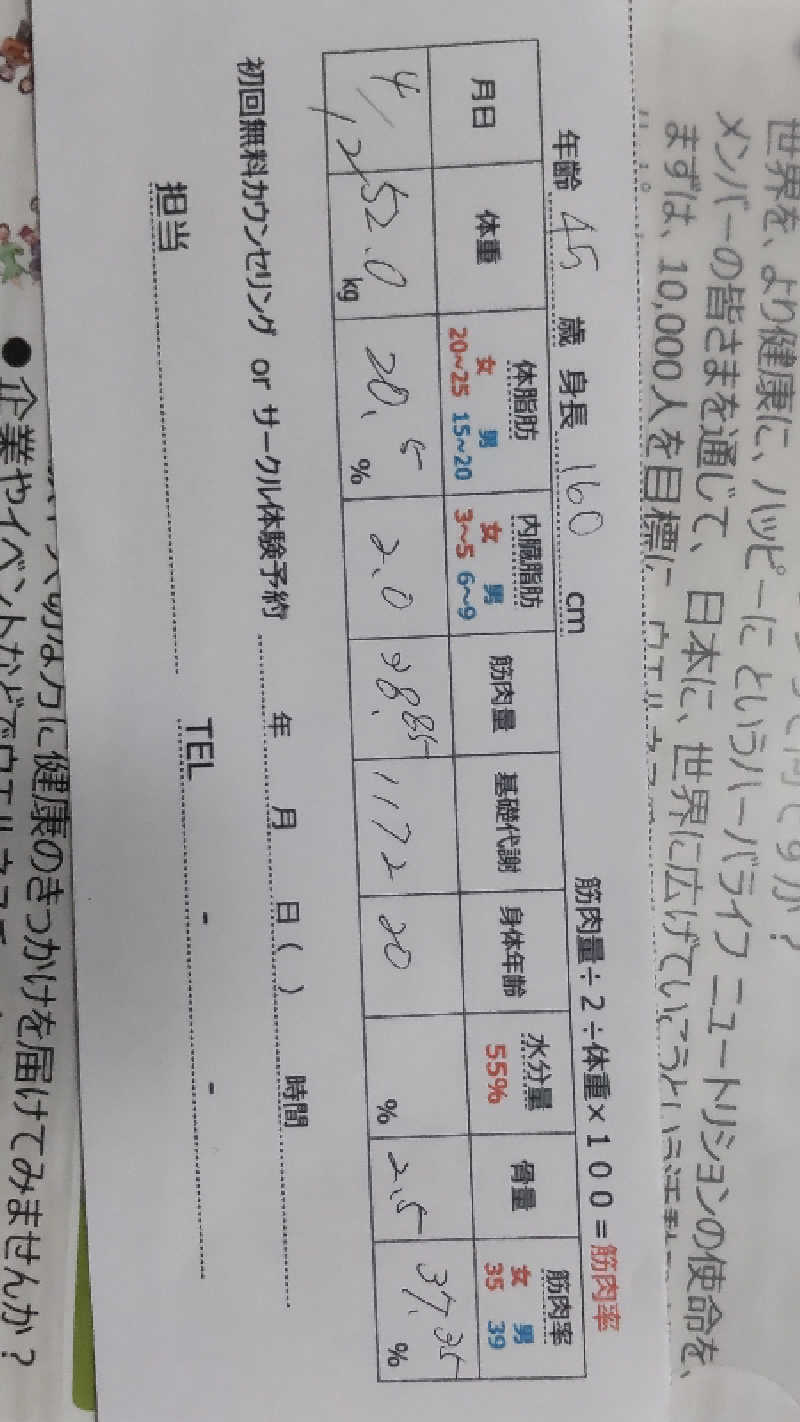 世界を、より健康に、ハッピーに というハーバライフ ニュートリションの使命を、
メンバーの皆さまを通じて、日本に、世界に広げていこうという活動
まずは、10,000人を目標に
筋肉量÷2÷体重×100=筋肉率
年齢 45 歳 身長 160 cm
月日 体重 体脂肪 内臓脂肪 筋肉量 基礎代謝 身体年齢 水分量 骨量 筋肉率
女 男 女 男 55% 女 男
20~25 15~20 3~5 6~9 35 39
4/12 52.0 kg 20.5 % 2.0 38.85 1172 20 % 2.5 37.35 %
初回無料カウンセリング or サークル体験予約 年 月 日( ) 時間
担当 TEL - -
大切な方に健康のきっかけを届けてみませんか?
●企業やイベントなどでウエルネス